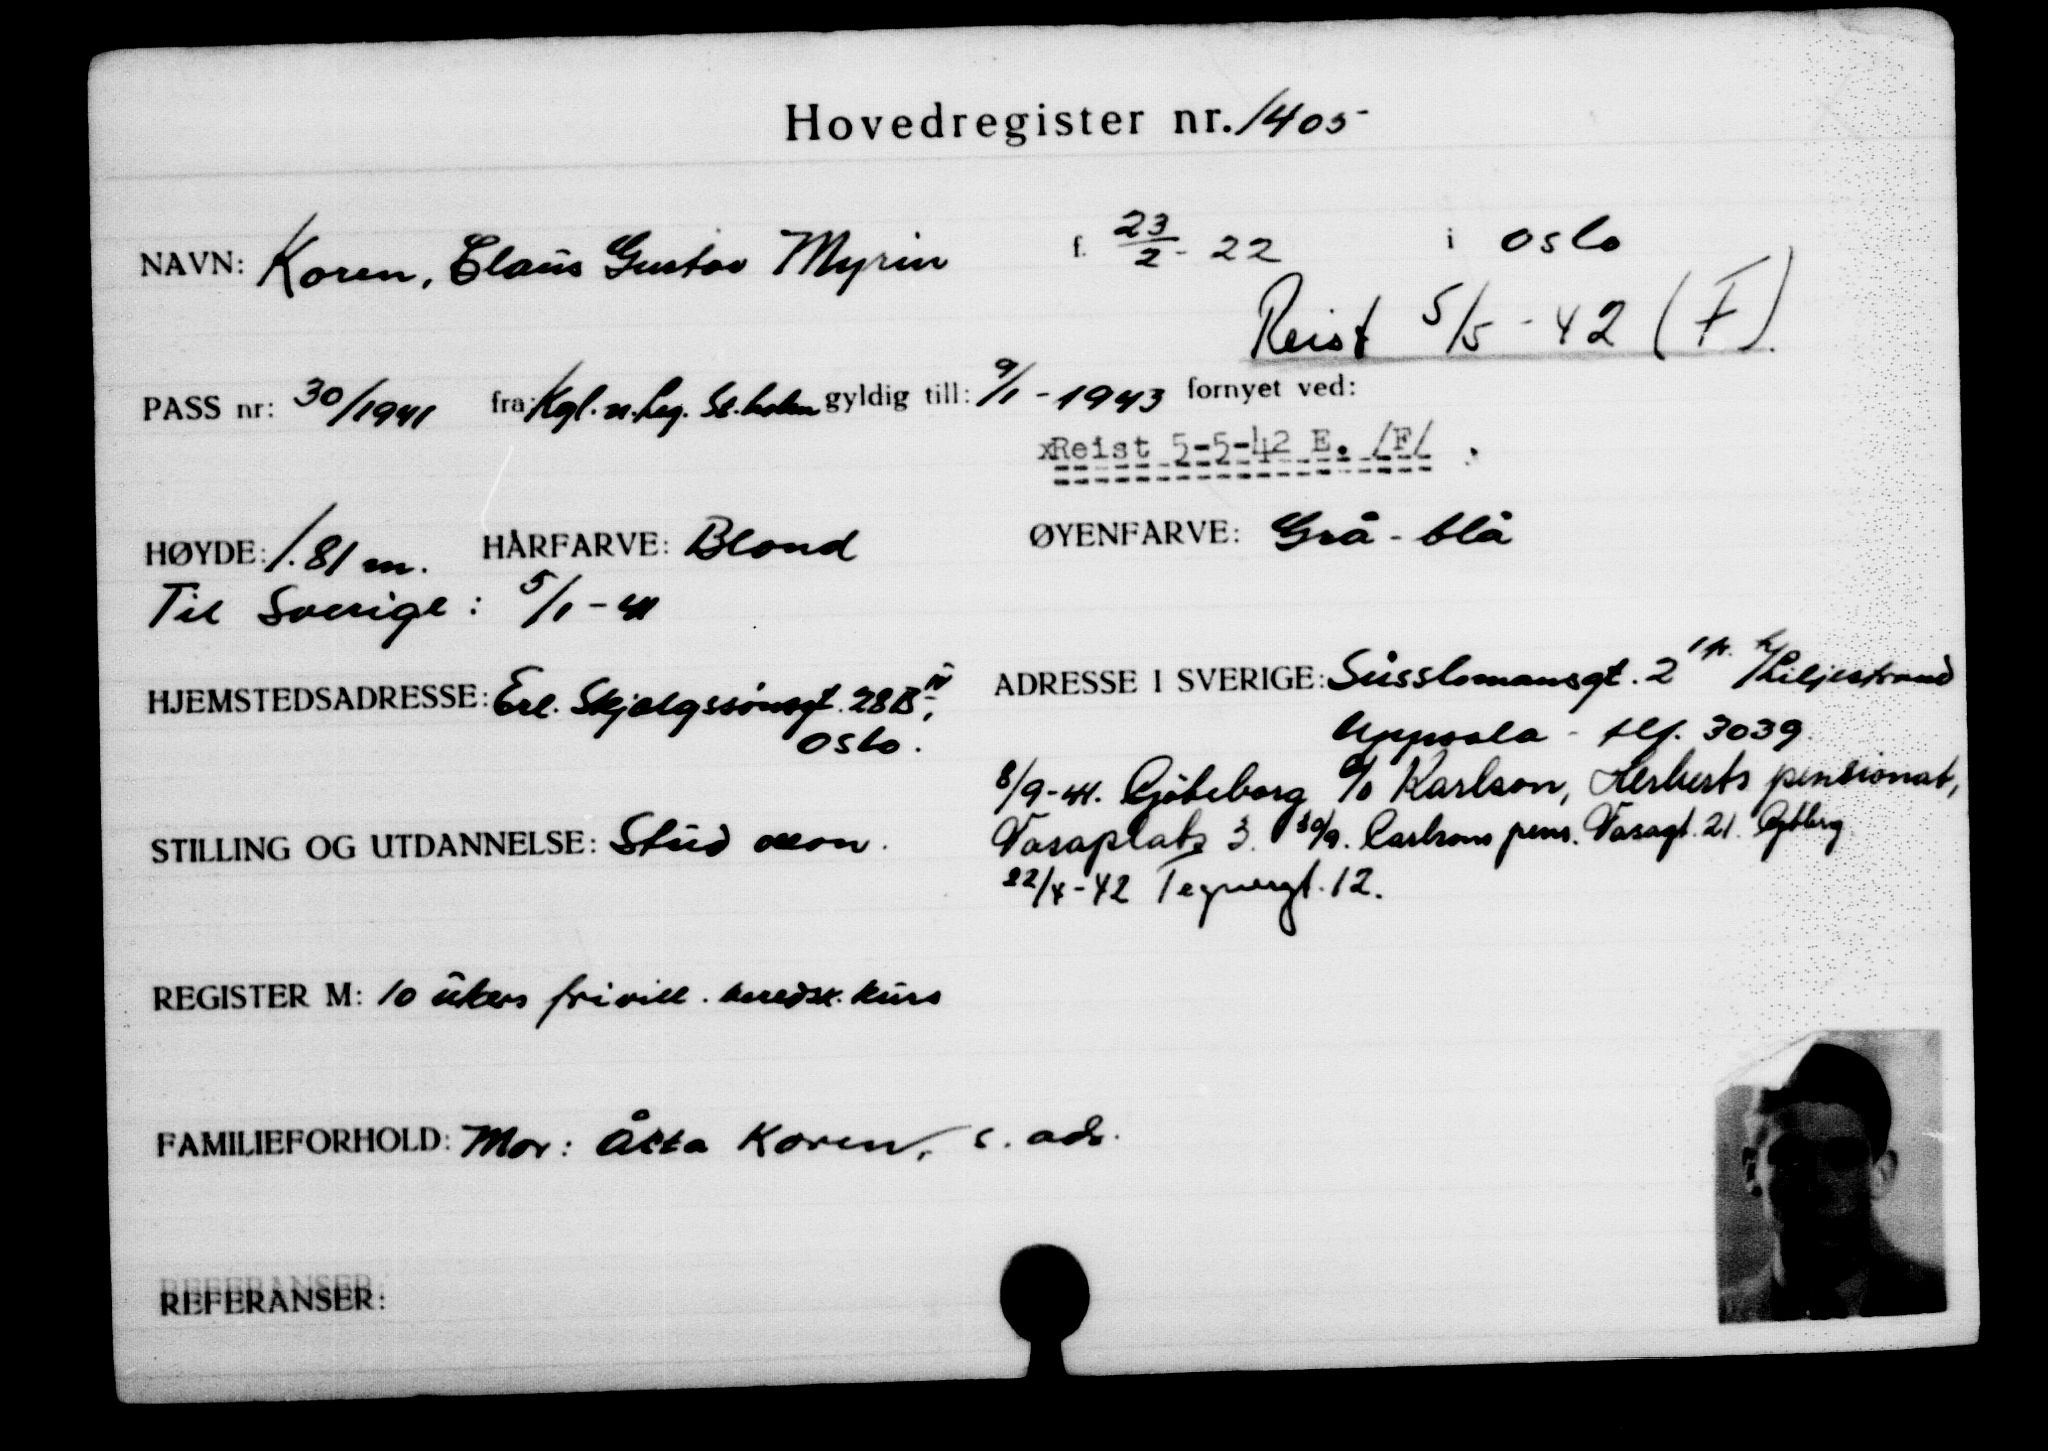 Hovedregister nr. 1405
NAVN: Koren, Claus Gustav Myrin f. 23/2-22 i Oslo
Reist 5/5-42 (F).
PASS nr: 30/1941 fra: Kgl. n. leg. St.holm gyldig till: 9/1-1943 fornyet ved:
xReist 5-5-42 E. /F/.
HØYDE: 1.81 m. HÅRFARVE: Blond ØYENFARVE: Grå-blå
Til Sverige: 5/1-41
HJEMSTEDSADRESSE: Erl. Skjalgssønsgt. 28B IV, Oslo.
ADRESSE I SVERIGE: Sysslomansgt. 2 1 tr. h/Liljestrand
Uppsala - tlf. 3039.
8/9-41. Gøteborg c/o Karlson, Herberts pensionat,
Vasaplats 3. 30/9. Carlsons pens. Vasagt. 21. Gøtbrg
22/4-42 Tegnergt. 12.
STILLING OG UTDANNELSE: Stud oecon.
REGISTER M: 10 ukers frivill. beredsk. kurs
FAMILIEFORHOLD: Mor: Åsta Koren, s. adr.
REFERANSER: